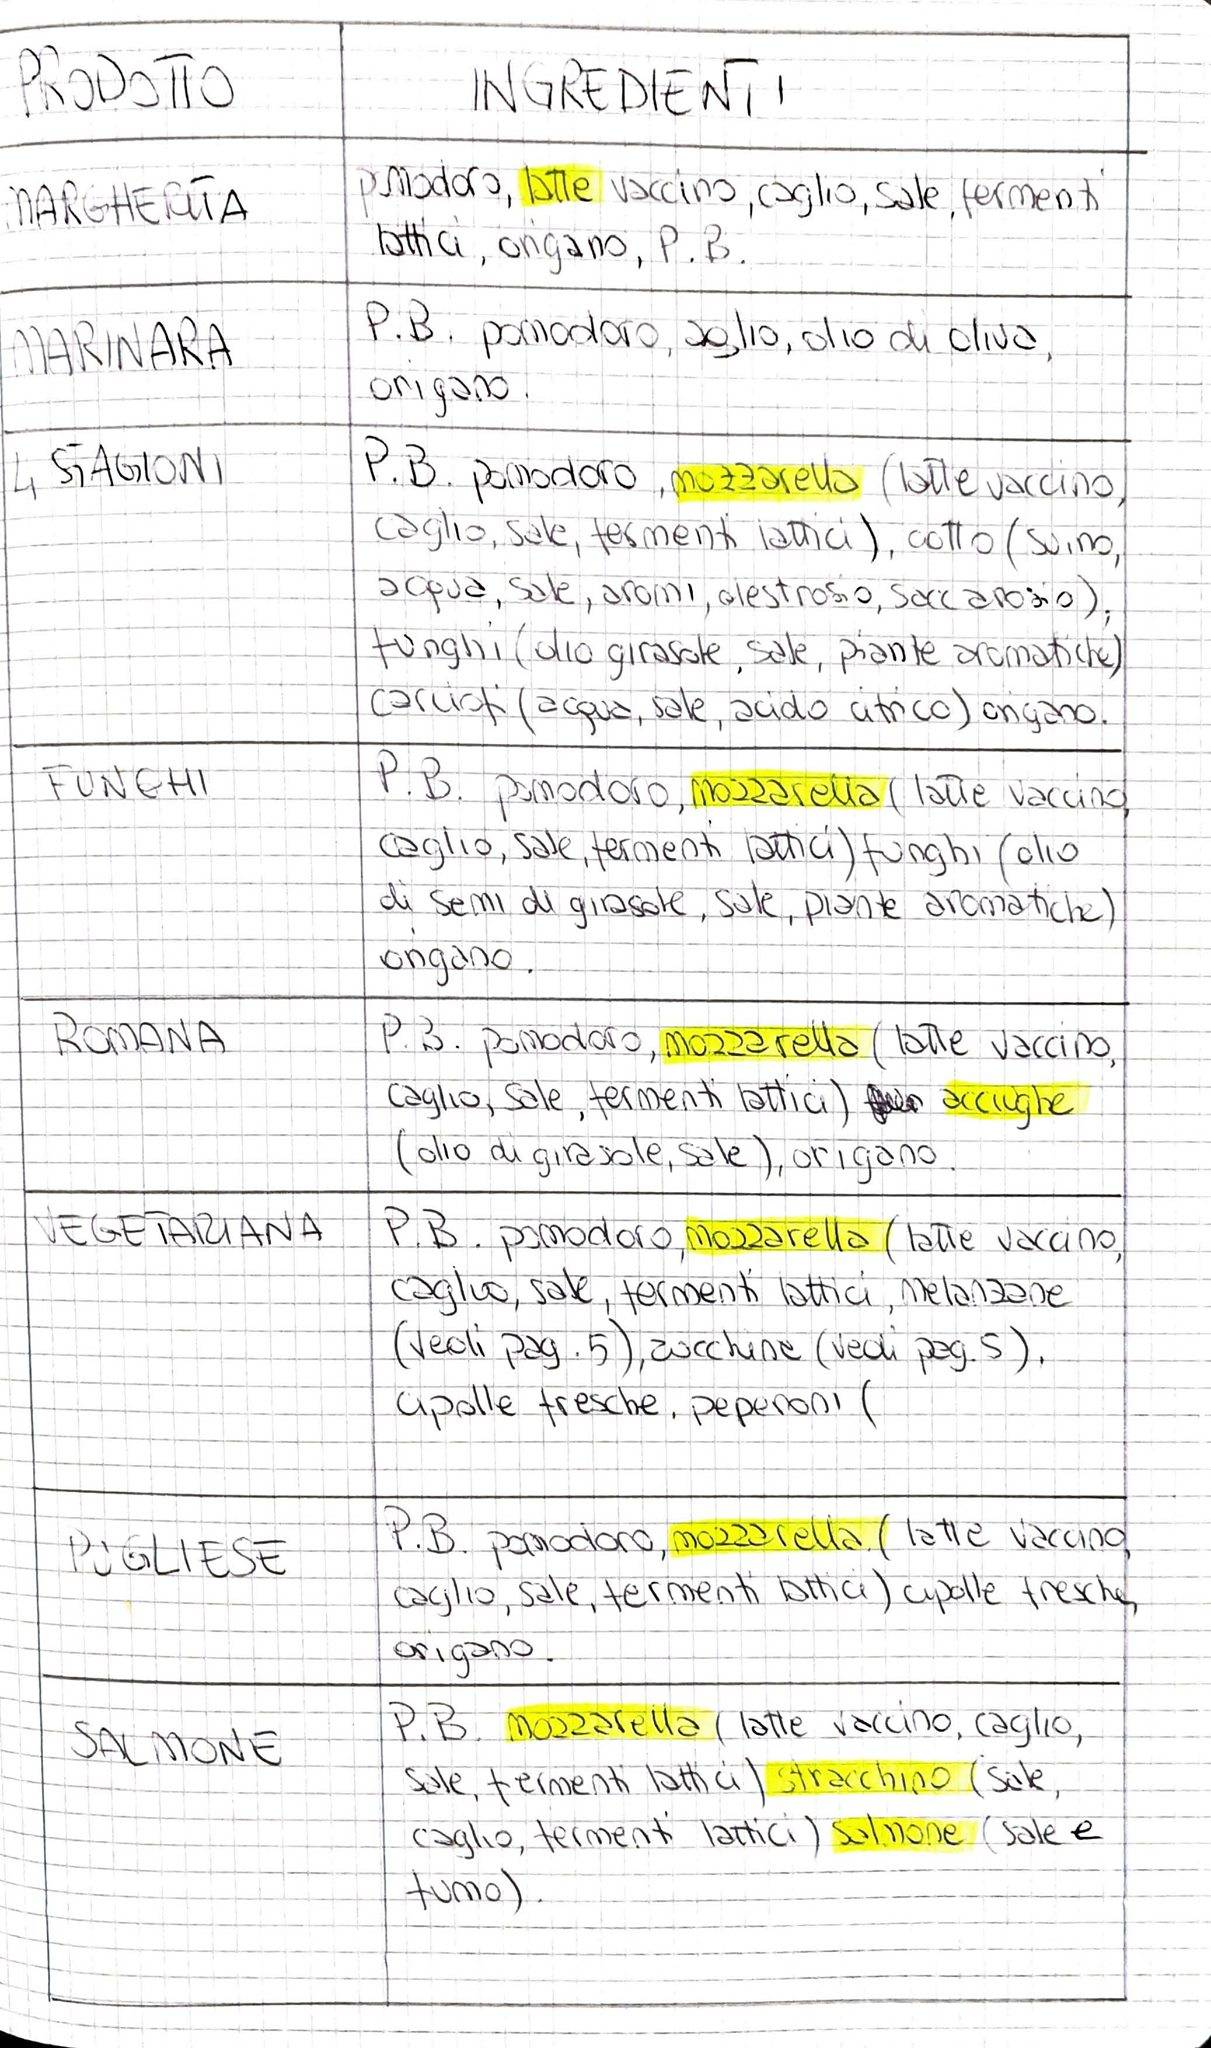 PRODOTTO INGREDIENTI
MARGHERITA pomodoro, latte vaccino, caglio, sale, fermenti
lattici, origano, P.B.
MARINARA P.B. pomodoro, aglio, olio di oliva,
origano.
4 STAGIONI P.B. pomodoro, mozzarella (latte vaccino,
caglio, sale, fermenti lattici), cotto (suino,
acqua, sale, aromi, destrosio, saccarosio),
funghi (olio girasole, sale, piante aromatiche)
carciofi (acqua, sale, acido citrico) origano.
FUNGHI P.B. pomodoro, mozzarella (latte vaccino,
caglio, sale, fermenti lattici) funghi (olio
di semi di girasole, sale, piante aromatiche)
origano.
ROMANA P.B. pomodoro, mozzarella (latte vaccino,
caglio, sale, fermenti lattici) acciughe
(olio di girasole, sale), origano.
VEGETARIANA P.B. pomodoro, mozzarella (latte vaccino,
caglio, sale, fermenti lattici, melanzane
(vedi pag. 5), zucchine (vedi pag. 5),
cipolle fresche, peperoni (
PUGLIESE P.B. pomodoro, mozzarella (latte vaccino,
caglio, sale, fermenti lattici) cipolle fresche,
origano.
SALMONE P.B. mozzarella (latte vaccino, caglio,
sale, fermenti lattici) stracchino (sale,
caglio, fermenti lattici) salmone (sale e
fumo).